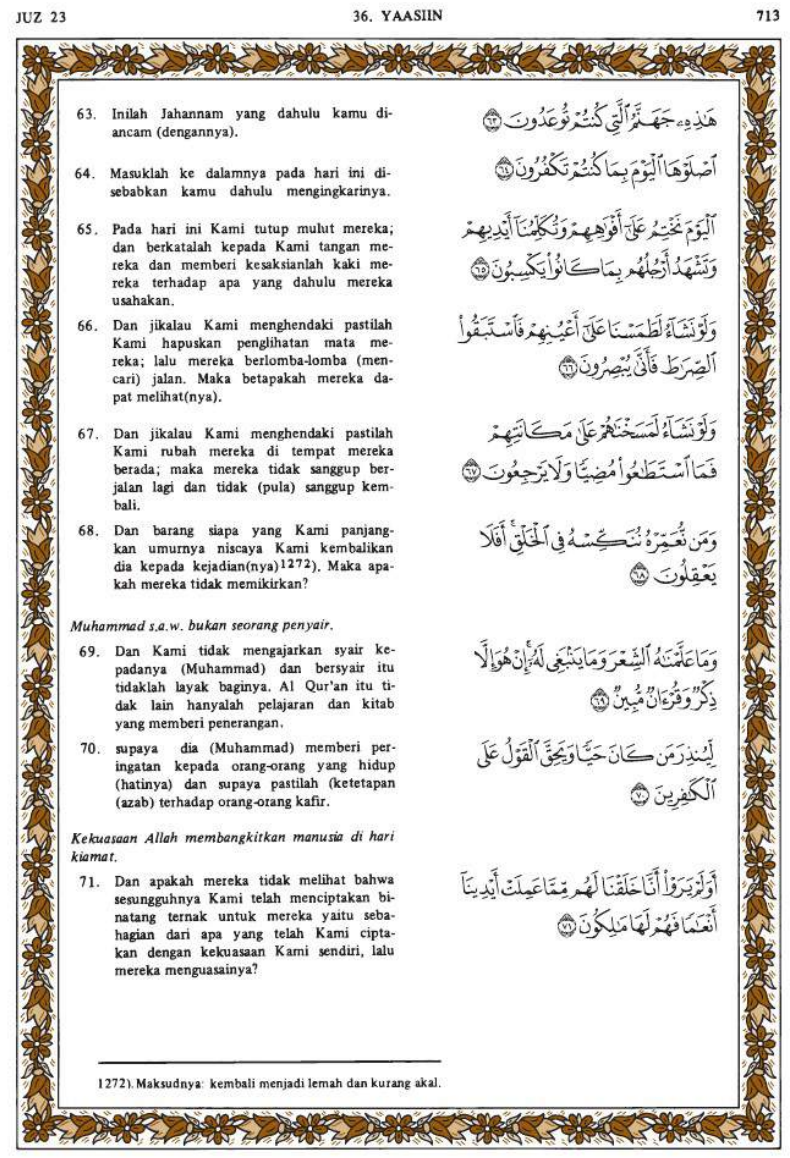 JUZ 23
36. YAASIIN
713
63. Inilah Jahannam yang dahulu kamu di-
ancam (dengannya).
هَٰذِهِۦ جَهَنَّمُ ٱلَّتِى كُنتُمْ تُوعَدُونَ ﴿٦٣﴾
64. Masuklah ke dalamnya pada hari ini di-
sebabkan kamu dahulu mengingkarinya.
ٱصْلَوْهَا ٱلْيَوْمَ بِمَا كُنتُمْ تَكْفُرُونَ ﴿٦٤﴾
65. Pada hari ini Kami tutup mulut mereka;
dan berkatalah kepada Kami tangan me-
reka dan memberi kesaksianlah kaki me-
reka terhadap apa yang dahulu mereka
usahakan.
ٱلْيَوْمَ نَخْتِمُ عَلَىٰٓ أَفْوَٰهِهِمْ وَتُكَلِّمُنَآ أَيْدِيهِمْ
وَتَشْهَدُ أَرْجُلُهُم بِمَا كَانُوا۟ يَكْسِبُونَ ﴿٦٥﴾
66. Dan jikalau Kami menghendaki pastilah
Kami hapuskan penglihatan mata me-
reka; lalu mereka berlomba-lomba (men-
cari) jalan. Maka betapakah mereka da-
pat melihat(nya).
وَلَوْ نَشَآءُ لَطَمَسْنَا عَلَىٰٓ أَعْيُنِهِمْ فَٱسْتَبَقُوا۟
ٱلصِّرَٰطَ فَأَنَّىٰ يُبْصِرُونَ ﴿٦٦﴾
67. Dan jikalau Kami menghendaki pastilah
Kami rubah mereka di tempat mereka
berada; maka mereka tidak sanggup ber-
jalan lagi dan tidak (pula) sanggup kem-
bali.
وَلَوْ نَشَآءُ لَمَسَخْنَٰهُمْ عَلَىٰ مَكَانَتِهِمْ
فَمَا ٱسْتَطَٰعُوا۟ مُضِيًّا وَلَا يَرْجِعُونَ ﴿٦٧﴾
68. Dan barang siapa yang Kami panjang-
kan umurnya niscaya Kami kembalikan
dia kepada kejadian(nya)1272). Maka apa-
kah mereka tidak memikirkan?
وَمَن نُّعَمِّرْهُ نُنَكِّسْهُ فِى ٱلْخَلْقِ ۖ أَفَلَا
يَعْقِلُونَ ﴿٦٨﴾
Muhammad s.a.w. bukan seorang penyair.
69. Dan Kami tidak mengajarkan syair ke-
padanya (Muhammad) dan bersyair itu
tidaklah layak baginya. Al Qur'an itu ti-
dak lain hanyalah pelajaran dan kitab
yang memberi penerangan,
وَمَا عَلَّمْنَٰهُ ٱلشِّعْرَ وَمَا يَنۢبَغِى لَهُۥٓ ۚ إِنْ هُوَ إِلَّا
ذِكْرٌ وَقُرْءَانٌ مُّبِينٌ ﴿٦٩﴾
70. supaya dia (Muhammad) memberi per-
ingatan kepada orang-orang yang hidup
(hatinya) dan supaya pastilah (ketetapan
(azab) terhadap orang-orang kafir.
لِّيُنذِرَ مَن كَانَ حَيًّا وَيَحِقَّ ٱلْقَوْلُ عَلَى
ٱلْكَٰفِرِينَ ﴿٧٠﴾
Kekuasaan Allah membangkitkan manusia di hari
kiamat.
71. Dan apakah mereka tidak melihat bahwa
sesungguhnya Kami telah menciptakan bi-
natang ternak untuk mereka yaitu seba-
hagian dari apa yang telah Kami cipta-
kan dengan kekuasaan Kami sendiri, lalu
mereka menguasainya?
أَوَلَمْ يَرَوْا۟ أَنَّا خَلَقْنَا لَهُم مِّمَّا عَمِلَتْ أَيْدِينَآ
أَنْعَٰمًا فَهُمْ لَهَا مَٰلِكُونَ ﴿٧١﴾
1272). Maksudnya: kembali menjadi lemah dan kurang akal.